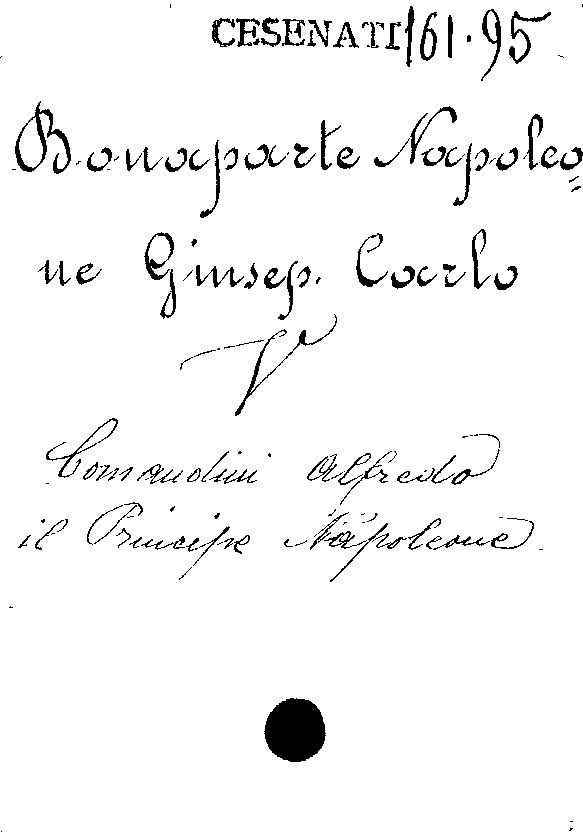 CESENATI 161.95
Bonaparte Napoleo=
ne Giusep. Carlo
V
Comandini Alfredo
il Principe Napoleone.